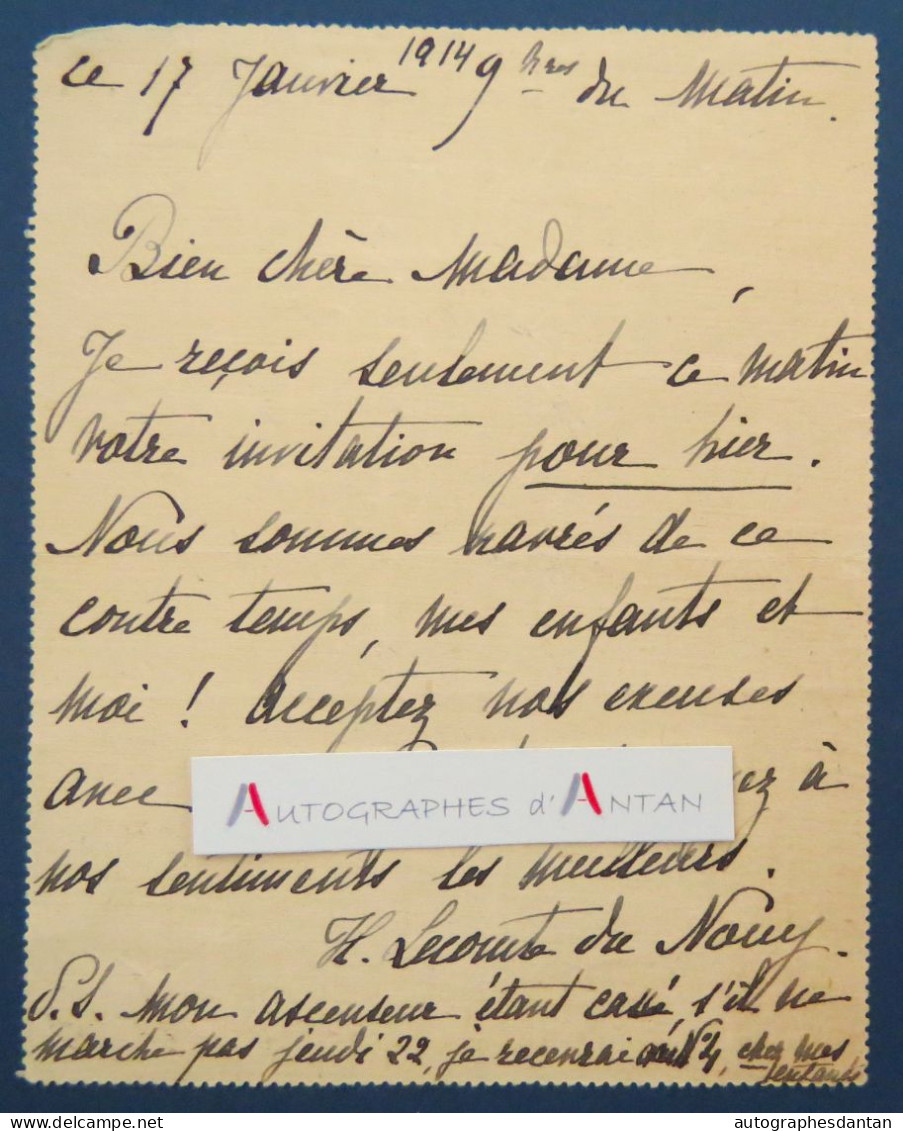 ce 17 Janvier 1914 9 hres du Matin.
Bien chère Madame,
Je reçois seulement ce matin
votre invitation pour hier.
Nous sommes navrés de ce
contre temps, mes enfants et
moi ! acceptez nos excuses
avec ez à
AUTOGRAPHES d'ANTAN
nos sentiments les meilleurs.
H. Lecomte du Nouÿ.
P.S. Mon ascenseur étant cassé, s'il ne
marche pas jeudi 22, je recevrai chez mes
enfants
delcampe.net
autographesdantan